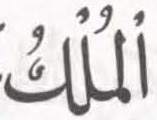 الْمُلْكُ